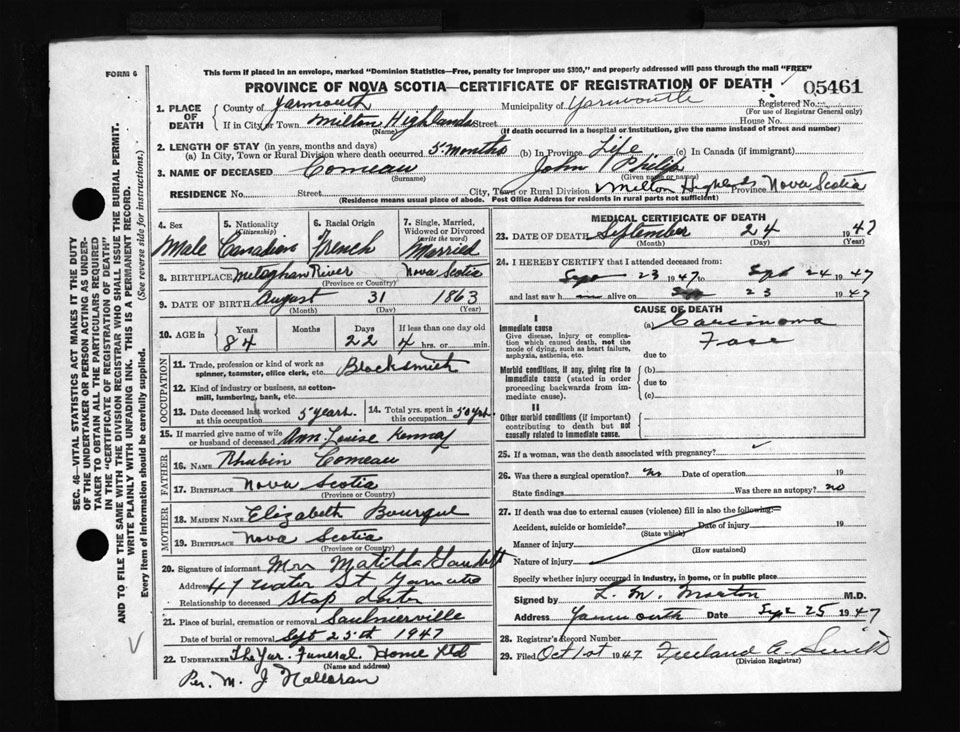 FORM 6
This form if placed in an envelope, marked "Dominion Statistics—Free, penalty for improper use $300," and properly addressed will pass through the mail "FREE"
PROVINCE OF NOVA SCOTIA—CERTIFICATE OF REGISTRATION OF DEATH
05461
1. PLACE OF DEATH
County of Yarmouth Municipality of Yarmouth Registered No.
(For use of Registrar General only)
If in City or Town Milton Highlands Street House No.
(Name) (If death occurred in a hospital or institution, give the name instead of street and number)
2. LENGTH OF STAY (in years, months and days)
(a) In City, Town or Rural Division where death occurred 5 months (b) In Province Life (c) In Canada (if immigrant)
3. NAME OF DECEASED Comeau John Philip
(Surname) (Given name or names)
RESIDENCE No. Street City, Town or Rural Division Milton Highlands Province Nova Scotia
(Residence means usual place of abode. Post Office Address for residents in rural parts not sufficient)
4. Sex 5. Nationality (Citizenship) 6. Racial Origin 7. Single, Married, Widowed or Divorced (write the word)
Male Canadian French Married
8. BIRTHPLACE Meteghan River Nova Scotia
(Province or Country)
9. DATE OF BIRTH August 31 1863
(Month) (Day) (Year)
10. AGE in Years Months Days If less than one day old
84 22 4 hrs. or min.
OCCUPATION
11. Trade, profession or kind of work as spinner, teamster, office clerk, etc. Blacksmith
12. Kind of industry or business, as cotton-mill, lumbering, bank, etc.
13. Date deceased last worked at this occupation 5 years 14. Total yrs. spent in this occupation 50 yrs
15. If married give name of wife or husband of deceased Ann Louise
FATHER
16. NAME Rhubin Comeau
17. BIRTHPLACE Nova Scotia
(Province or Country)
MOTHER
18. MAIDEN NAME Elizabeth Bourque
19. BIRTHPLACE Nova Scotia
(Province or Country)
20. Signature of informant Mrs Matilda
Address 47 Water St
Relationship to deceased Step
21. Place of burial, cremation or removal Saulnierville
Date of burial or removal Sept 25th 1947
22. UNDERTAKER The Yar. Funeral Home Ltd
(Name and address)
Per. M. J Halloran
MEDICAL CERTIFICATE OF DEATH
23. DATE OF DEATH September 24 1947
(Month) (Day) (Year)
24. I HEREBY CERTIFY that I attended deceased from:
Sept 23 1947 to Sept 24 1947
and last saw h alive on Sep 23 1947
CAUSE OF DEATH
I
Immediate cause
Give disease, injury or complication which caused death, not the mode of dying, such as heart failure, asphyxia, asthenia, etc.
(a) Carcinoma
Face
due to
Morbid conditions, if any, giving rise to immediate cause (stated in order proceeding backwards from immediate cause).
(b)
due to
(c)
II
Other morbid conditions (if important) contributing to death but not causally related to immediate cause.
25. If a woman, was the death associated with pregnancy?
26. Was there a surgical operation? no Date of operation 19
State findings Was there an autopsy? no
27. If death was due to external causes (violence) fill in also the following:
Accident, suicide or homicide? Date of injury 19
(State which)
Manner of injury
(How sustained)
Nature of injury
Specify whether injury occurred in industry, in home, or in public place
Signed by L. M. Morton M.D.
Address Yarmouth Date Sept 25 1947
28. Registrar's Record Number
29. Filed Oct 1st 1947 Freeland A. Smith
(Division Registrar)
SEC. 46—VITAL STATISTICS ACT MAKES IT THE DUTY
OF THE UNDERTAKER OR PERSON ACTING AS UNDER-
TAKER TO OBTAIN ALL THE PARTICULARS REQUIRED
IN THE "CERTIFICATE OF REGISTRATION OF DEATH"
AND TO FILE THE SAME WITH THE DIVISION REGISTRAR WHO SHALL ISSUE THE BURIAL PERMIT.
WRITE PLAINLY WITH UNFADING INK. THIS IS A PERMANENT RECORD.
Every item of information should be carefully supplied. (See reverse side for instructions.)